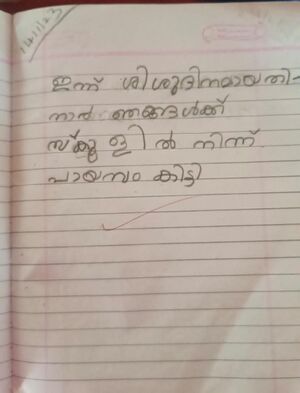 14/11/23
ഇന്ന് ശിശുദിനമായതി-
നാൽ ഞങ്ങൾക്ക്
സ്കൂളിൽ നിന്ന്
പായസം കിട്ടി